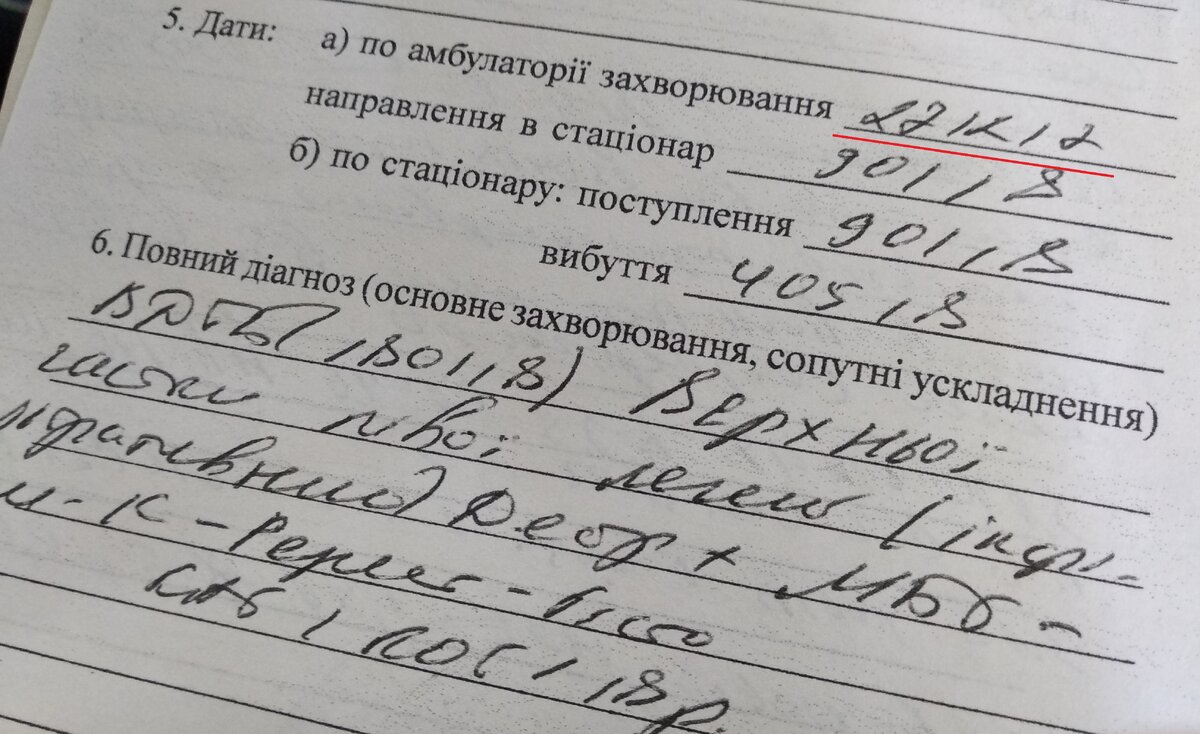 5. Дати: а) по амбулаторії захворювання
направлення в стаціонар 901,18
б) по стаціонару: поступлення 901,18
вибуття 405,18
6. Повний діагноз (основне захворювання, сопутні ускладнення)
ВДТБ (1801,18) Верхньої
частки лівої легені (інфі-
льтративний) Дестр + МБТ -
М - К - Рифат - Гісто
КАТ 1 КОГ 1,18 р.